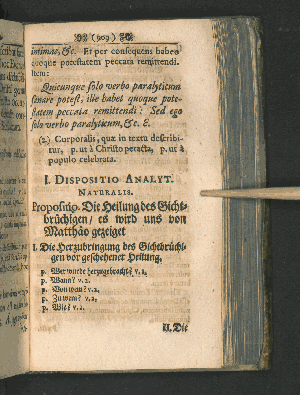 (909)
intimæ, &c. Et per consequens habeo
quoque potestatem peccata remittendi.
Item:
Quicunque solo verbo paralyticum
sanare potest, ille habet quoque pote-
statem peccata remittendi: Sed ego
solo verbo paralyticum, &c. E.
(2.) Corporalis, quæ in textu describi-
tur, p. ut à Christo peracta, p. ut à
populo celebrata.
I. DISPOSITIO ANALYT.
NATURALIS.
Propositio. Die Heilung des Gicht-
brüchigen / es wird uns von
Matthäo gezeiget
I. Die Herzubringung des Gichtbrüchi-
gen vor geschehener Heilung,
p. Wer wurde herzugebracht? v. 2,
p. Wann? v. 2,
p. Von wem? v. 2,
p. Zu wem? v. 2,
p. Wie? v. 2,
II. Die